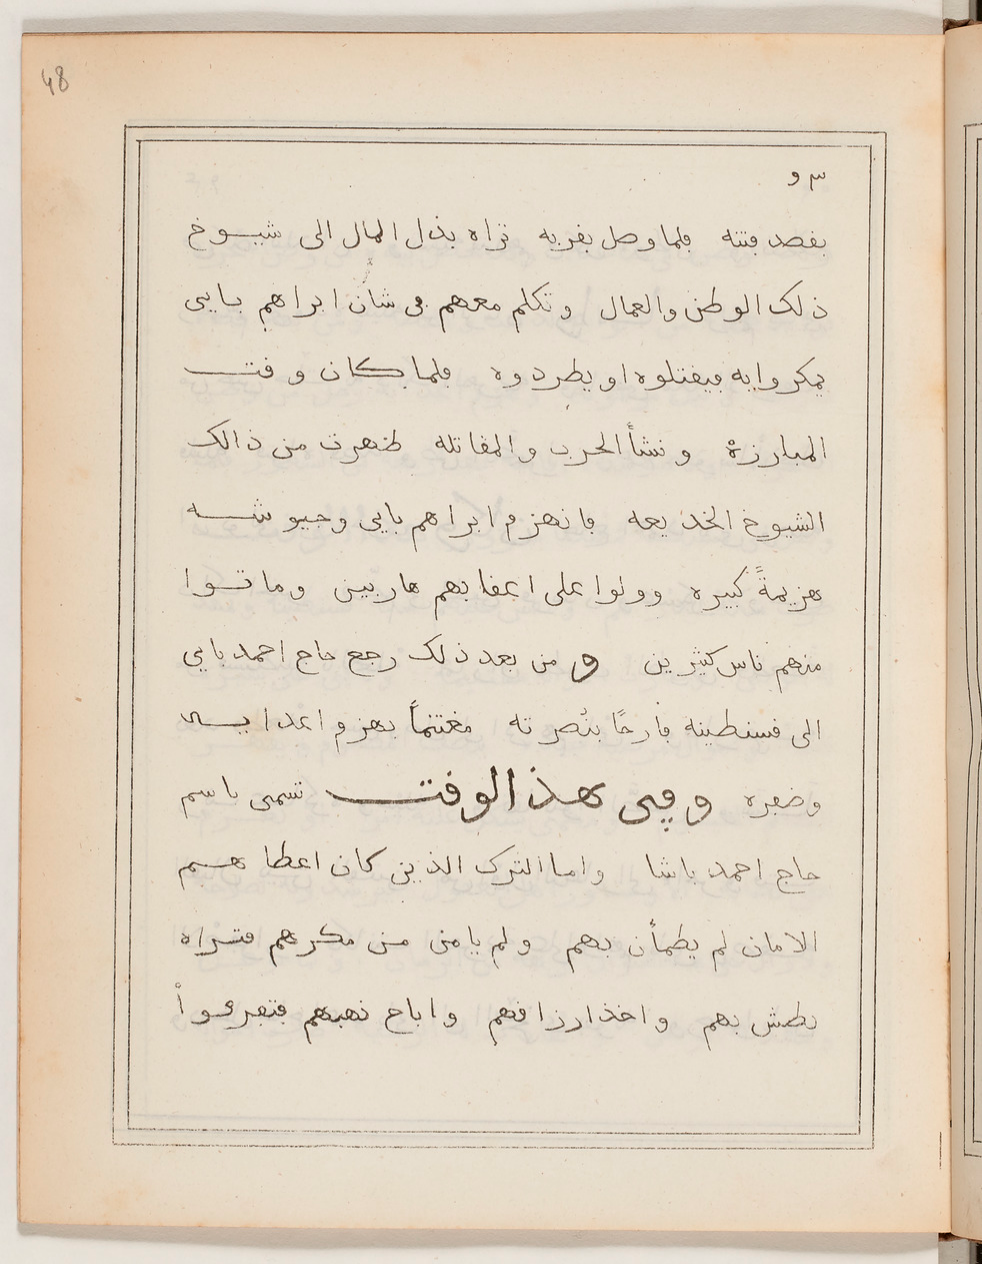 48
بقصد فتنه فلما وصل بقربه تراه بذل المال الى شيوخ
ذلك الوطن والعمال وتكلم معهم في شان ابراهم بايى
يمكروا به فيقتلوه او يطردوه فلما كان وقت
المبارزة ونشأ الحرب والمقاتله ظهرت من ذالك
الشيوخ الخديعه فانهزم ابراهم بايى وجيوشه
هزيمةً كبيره وولوا على اعقابهم هاربين وماتوا
منهم ناس كثيرين و من بعد ذلك رجع حاج احمد بايى
الى قسنطينه فارحًا بنُصرته مغتنماً بهزم اعدايه
وضفره وفي هذ الوقت تسمى باسم
حاج احمد باشا واما الترك الذين كان اعطا هم
الامان لم يطمأن بهم ولم يامن من مكرهم فتراه
بطش بهم واخذ ارزاقهم واباح نهبهم فتفرعوا